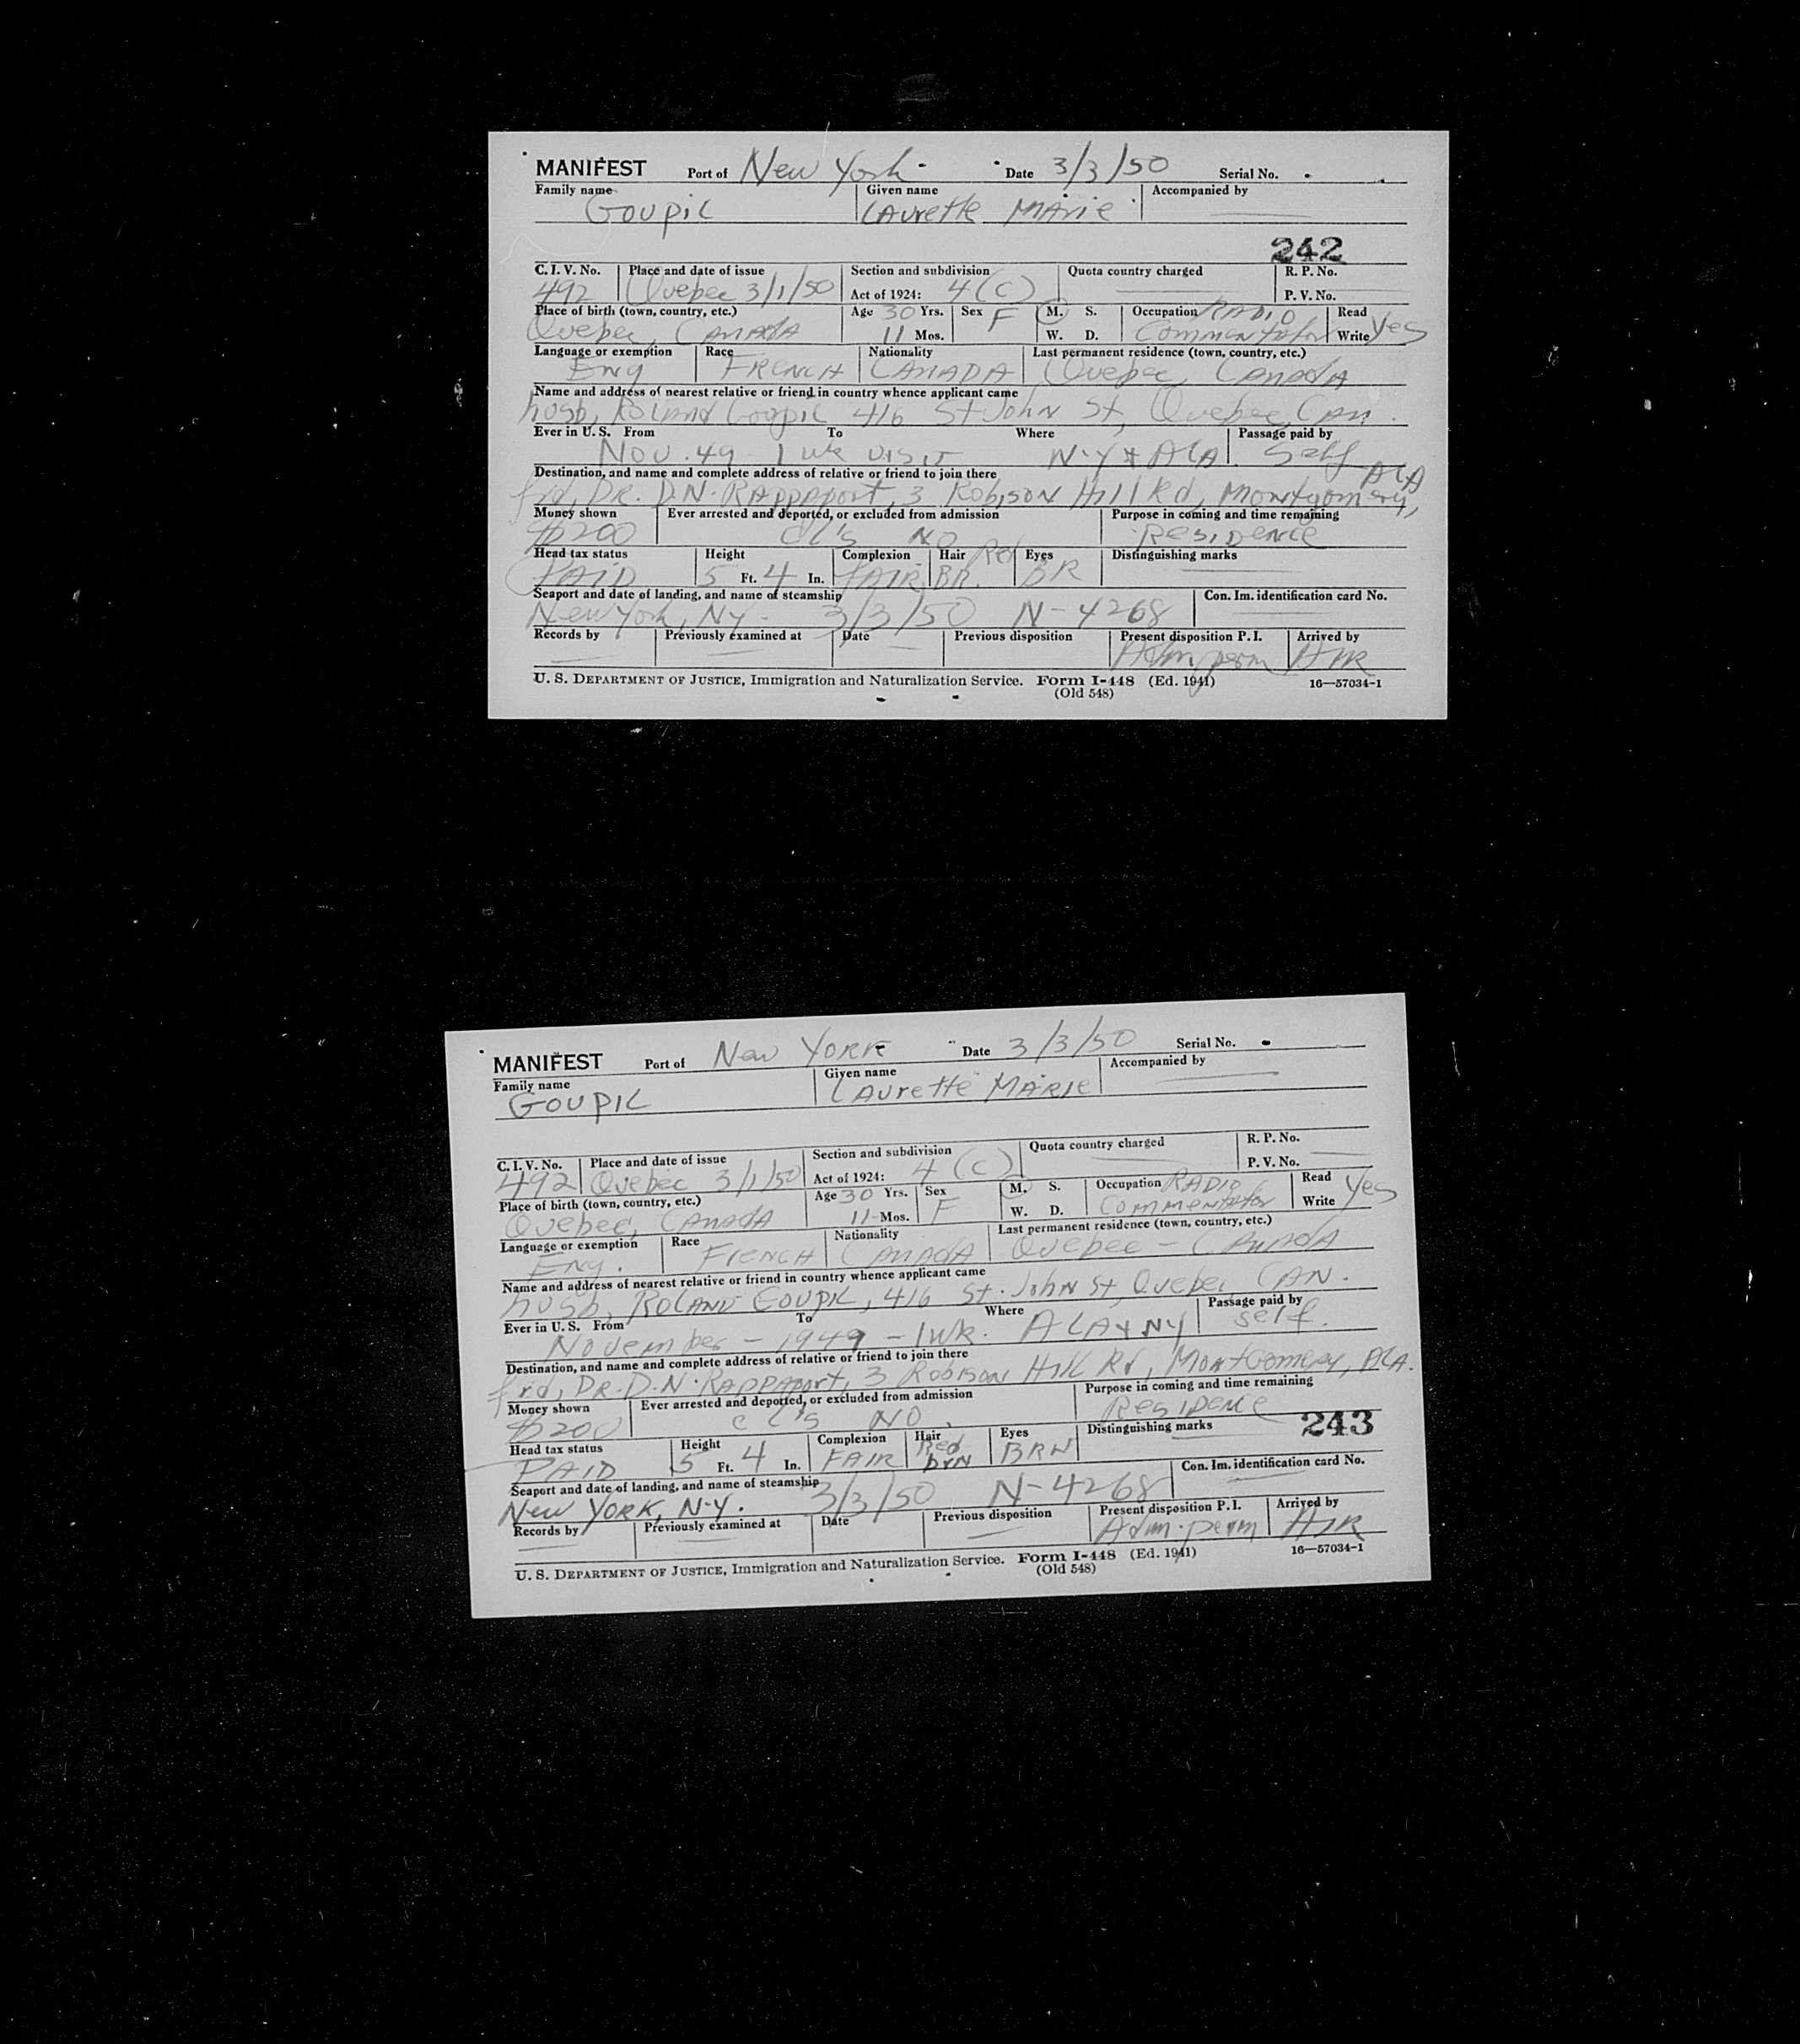 MANIFEST Port of New York Date 3/3/50 Serial No.
Family name Given name Accompanied by
Goupil Laurette Marie
242
C. I. V. No. Place and date of issue Section and subdivision Quota country charged R. P. No.
492 Quebec 3/1/50 Act of 1924: 4 (C) P. V. No.
Place of birth (town, country, etc.) Age 30 Yrs. Sex F M. S. Occupation RADIO Read
Quebec, CANADA 11 Mos. W. D. Commentator Write Yes
Language or exemption Race Nationality Last permanent residence (town, country, etc.)
Eng FRENCH CANADA Quebec, CANADA
Name and address of nearest relative or friend in country whence applicant came
husb, Roland Goupil 416 St John St, Quebec, CAN.
Ever in U. S. From To Where Passage paid by
Nov. 49 - 1 wk visit N.Y & ALA Self
Destination, and name and complete address of relative or friend to join there
frd, DR. D.N. RAPPAPORT, 3 Robison Hill Rd, Montgomery, ALA
Money shown Ever arrested and deported, or excluded from admission Purpose in coming and time remaining
$200 CL'S NO Residence
Head tax status Height Complexion Hair Red Eyes Distinguishing marks
PAID 5 Ft. 4 In. FAIR BR. BR
Seaport and date of landing, and name of steamship Con. Im. identification card No.
New York, NY. 3/3/50 N-4268
Records by Previously examined at Date Previous disposition Present disposition P. I. Arrived by
Adm perm AIR
U. S. DEPARTMENT OF JUSTICE, Immigration and Naturalization Service. Form I-448 (Ed. 1941) 16—57034-1
(Old 548)
MANIFEST Port of New YORK Date 3/3/50 Serial No.
Family name Given name Accompanied by
GOUPIL LAURETTE MARIE
C. I. V. No. Place and date of issue Section and subdivision Quota country charged R. P. No.
492 Quebec 3/1/50 Act of 1924: 4 (C) P. V. No.
Place of birth (town, country, etc.) Age 30 Yrs. Sex M. S. Occupation RADIO Read
Quebec, CANADA 11 Mos. F W. D. Commentator Write Yes
Language or exemption Race Nationality Last permanent residence (town, country, etc.)
Eng. FRENCH CANADA Quebec - CANADA
Name and address of nearest relative or friend in country whence applicant came
husb, ROLAND GOUPIL, 416 St. John St, Quebec, CAN.
Ever in U. S. From To Where Passage paid by
November - 1949 - 1wk. ALA & NY self.
Destination, and name and complete address of relative or friend to join there
frd, DR. D.N. RAPPAPORT, 3 Robison Hill Rd, MONTGOMERY, ALA.
Money shown Ever arrested and deported, or excluded from admission Purpose in coming and time remaining
$200 CL'S NO Residence
243
Head tax status Height Complexion Hair Eyes Distinguishing marks
PAID 5 Ft. 4 In. FAIR Red brn BRN
Seaport and date of landing, and name of steamship Con. Im. identification card No.
New YORK, N.Y. 3/3/50 N-4268
Records by Previously examined at Date Previous disposition Present disposition P. I. Arrived by
Adm. perm AIR
U. S. DEPARTMENT OF JUSTICE, Immigration and Naturalization Service. Form I-448 (Ed. 1941) 16—57034-1
(Old 548)